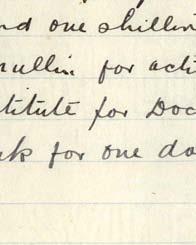 nd one shillin
nullin for acti
stitute for Doc
nk for one da